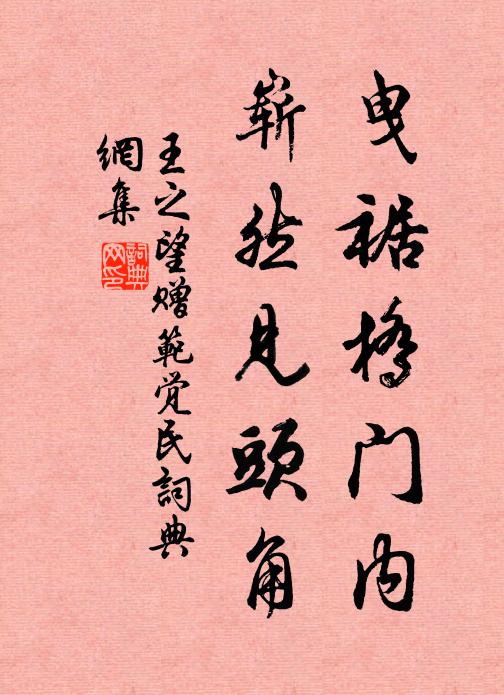 曳裾桥门内
崭然见頭角
王之望赠範觉民詞典
網集
詞典网印